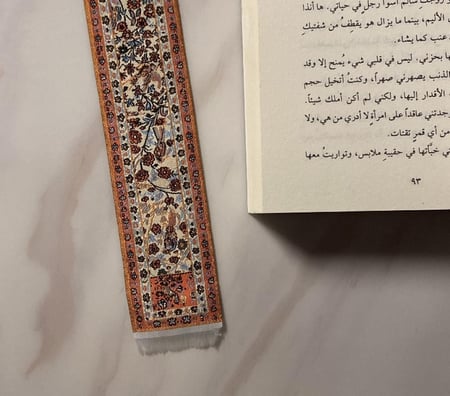 زوجت سالم أسوأ رجل في حياتي. ها أنذا
الأليم، بينما ما يزال هو يقطِفُ من شفتيكِ
عنب كما يشاء.
بحزني. ليس في قلبي شيء يُمنح إلا وقد
الذنب يصهرني صهراً، وكنتُ أتخيل حجم
الأقدار إليها، ولكني لم أكن أملك شيئاً.
وجدتني عاقداً على امرأةٍ لا أدري من هي، ولا
من أي قمرٍ تقتات.
خبّأتها في حقيبةِ ملابس، وتواريتُ معها
٩٣